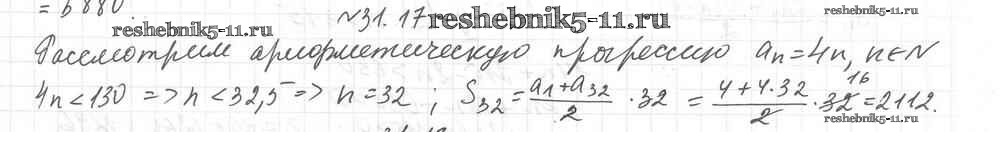 = 6880.
№31.17 reshebnik5-11.ru
reshebnik5-11.ru reshebnik5-11.ru
Рассмотрим арифметическую прогрессию aₙ=4n, n∈N
4n<130 => n<32,5 => n=32 ; S₃₂ = (a₁+a₃₂)/2 · 32 = (4+4·32)/2 · 32 16 = 2112.
reshebnik5-11.ru